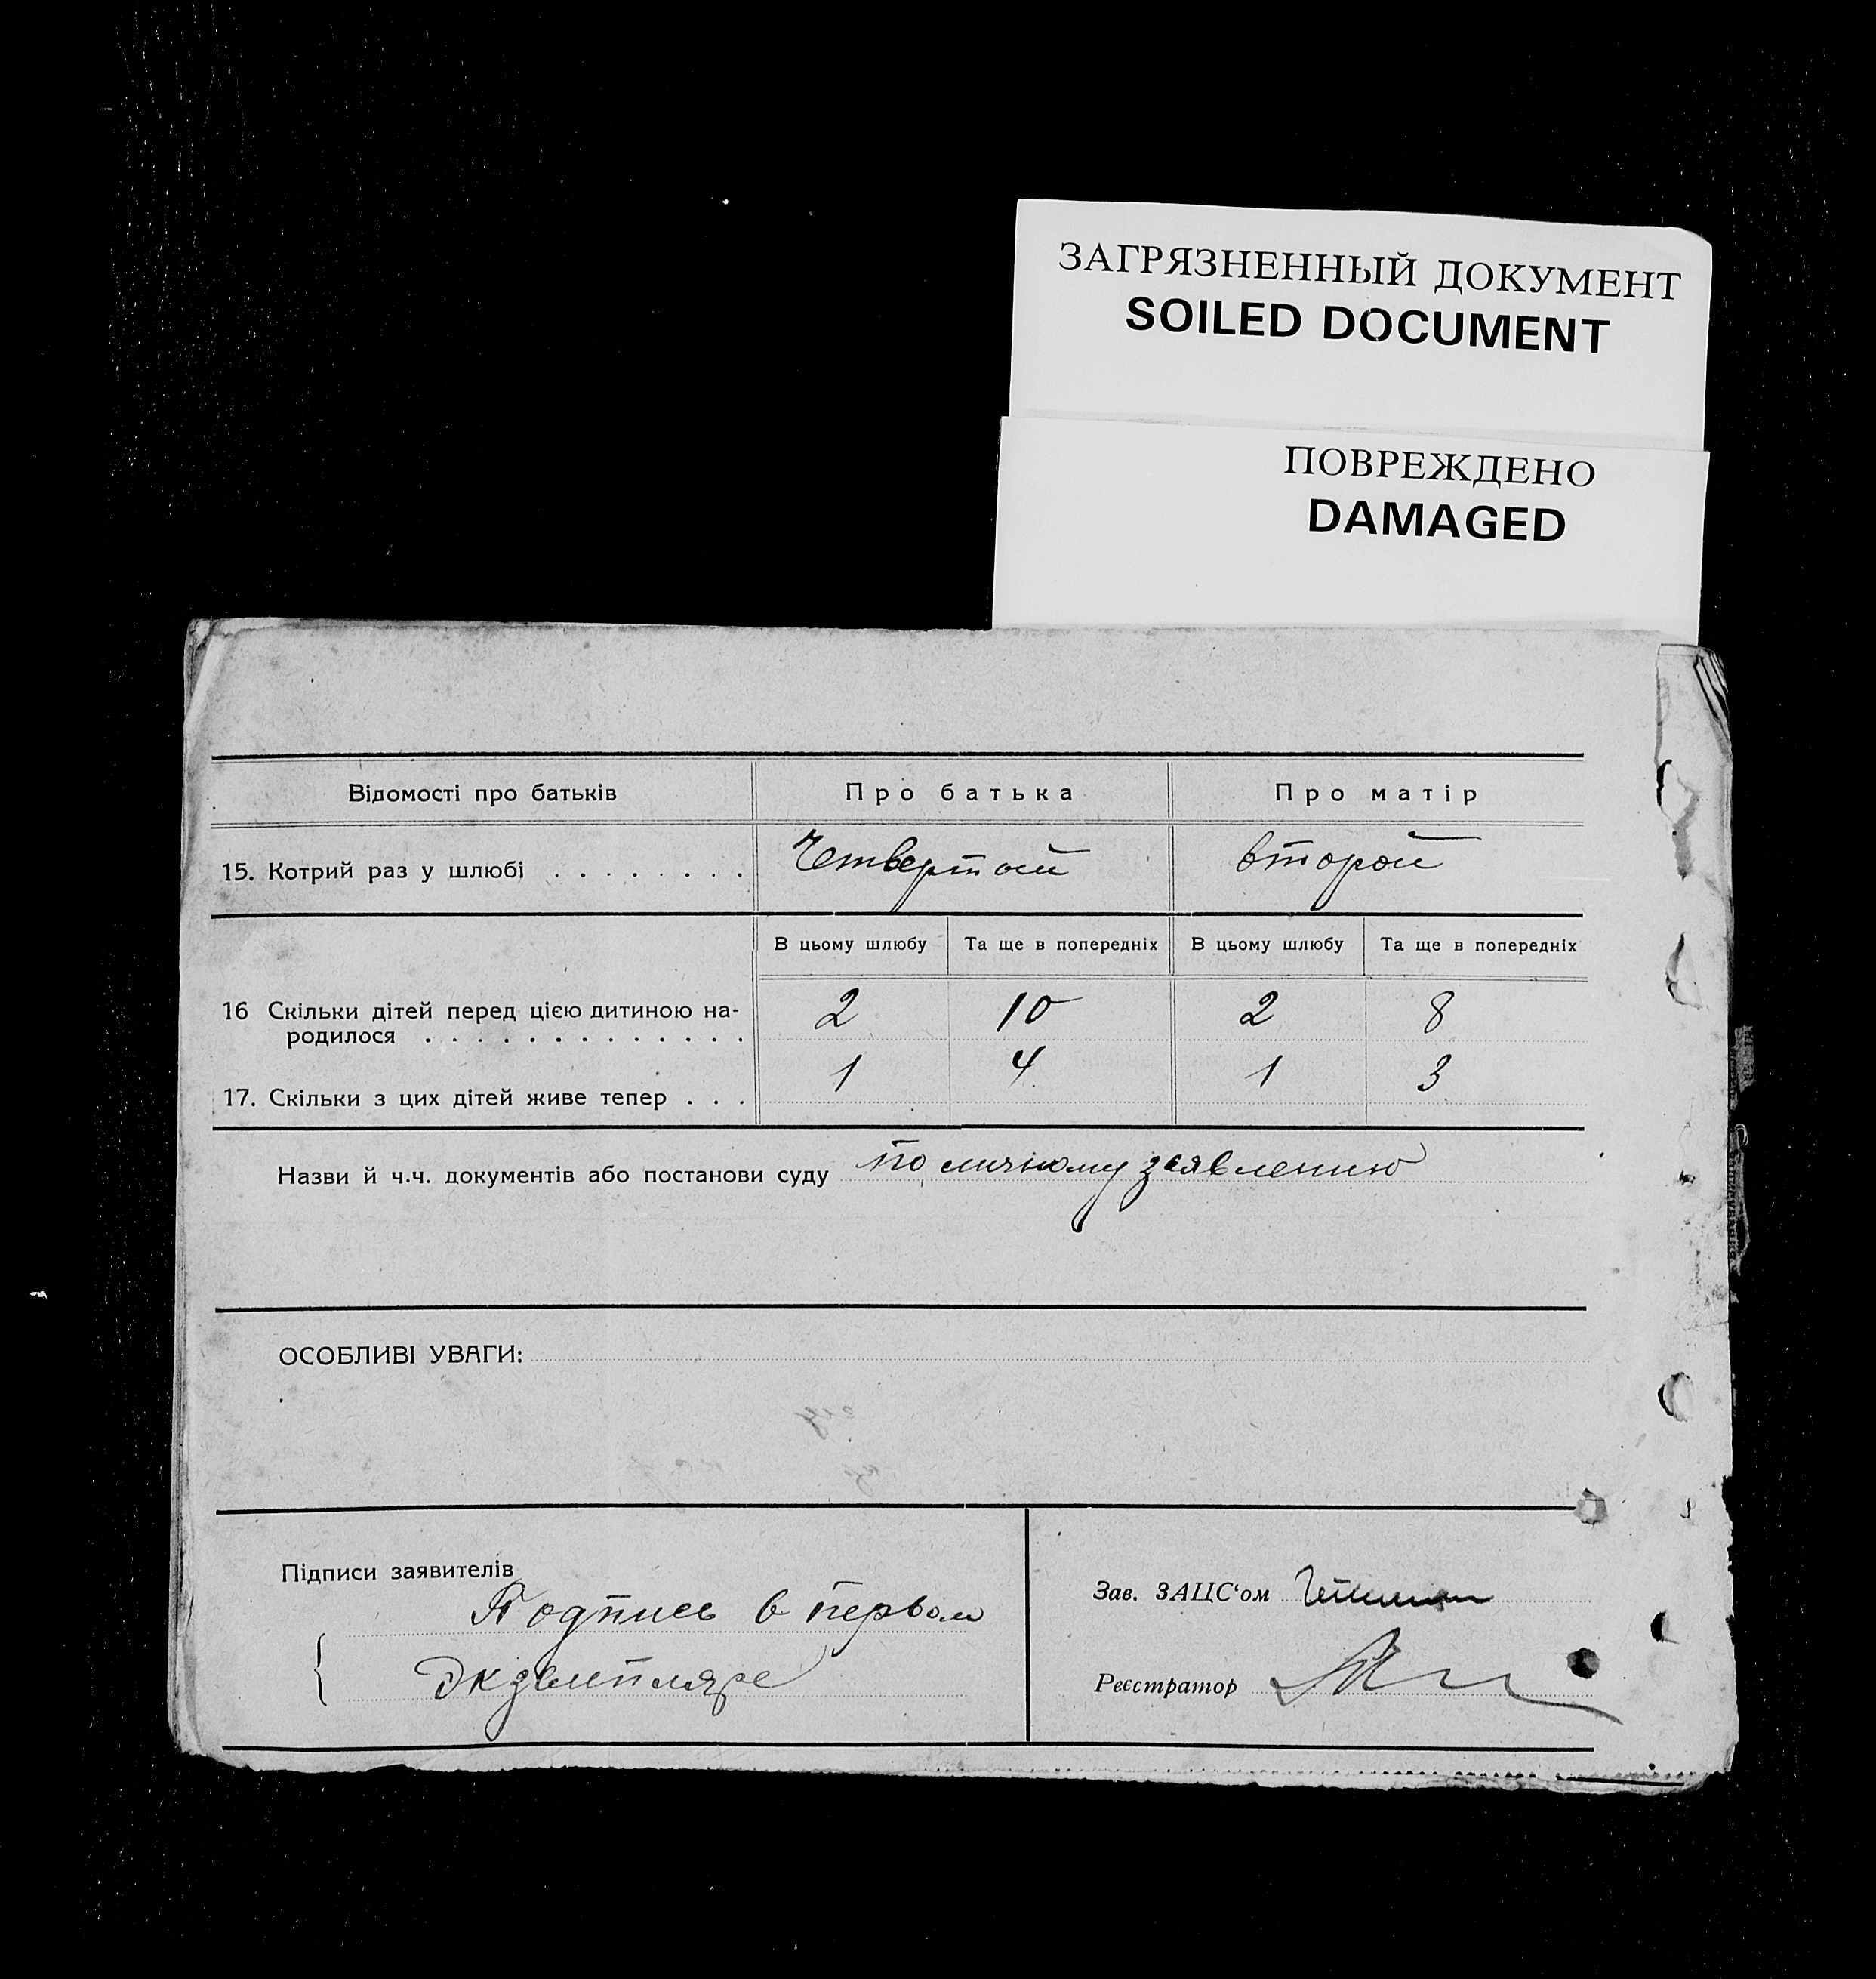 ЗАГРЯЗНЕННЫЙ ДОКУМЕНТ
SOILED DOCUMENT
ПОВРЕЖДЕНО
DAMAGED
Відомості про батьків Про батька Про матір
15. Котрий раз у шлюбі . . . . . . . . Четвертой второй
В цьому шлюбу Та ще в попередніх В цьому шлюбу Та ще в попередніх
16 Скільки дітей перед цією дитиною на- 2 10 2 8
родилося . . . . . . . . . . . . .
17. Скільки з цих дітей живе тепер . . . 1 4 1 3
Назви й ч.ч. документів або постанови суду по личному заявлению
ОСОБЛИВІ УВАГИ:
Підписи заявителів
Подпись в первом
экземпляре
Зав. ЗАЦС‘ом
Реєстратор